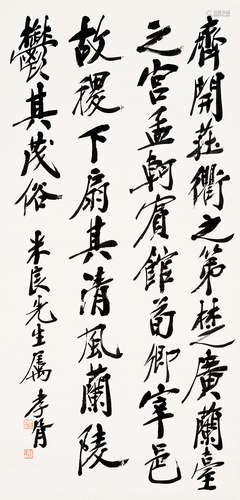 齊開莊衢之第楚廣蘭臺
之宮孟軻賓館荀卿宰邑
故稷下扇其清風蘭陵
鬱其茂俗
米良先生屬 孝胥